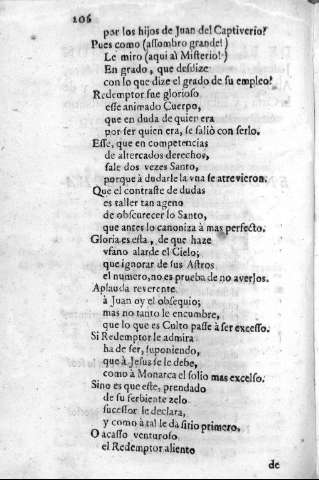 106
por los hijos de Juan del Captiverio?
Pues como (assombro grande!)
Le miro (aqui ài Misterio!)
En grado, que desdize
con lo que dize el grado de su empleo?
Redemptor fue glorioso
esse animado Cuerpo,
que en duda de quien era
por ser quien era, se saliò con serlo.
Esse, que en competencias
de altercados derechos,
sale dos vezes Santo,
porque à dudarle la vna se atrevieron.
Que el contraste de dudas
es taller tan ageno
de obscurecer lo Santo,
que antes lo canoniza à mas perfecto.
Gloria es esta, de que haze
vfano alarde el Cielo;
que ignorar de sus Astros
el numero, no es prueba de no averlos.
Aplauda reverente
à Juan oy el obsequio;
mas no tanto le encumbre,
que lo que es Culto passe à ser excesso.
Si Redemptor le admira
ha de ser, suponiendo,
que à Jesus se le debe,
como à Monarca el solio mas excelso.
Sino es que este, prendado
de su ferbiente zelo
sucessor le declara,
y como à tal le dà sitio primero.
O acasso venturoso
el Redemptor aliento
de